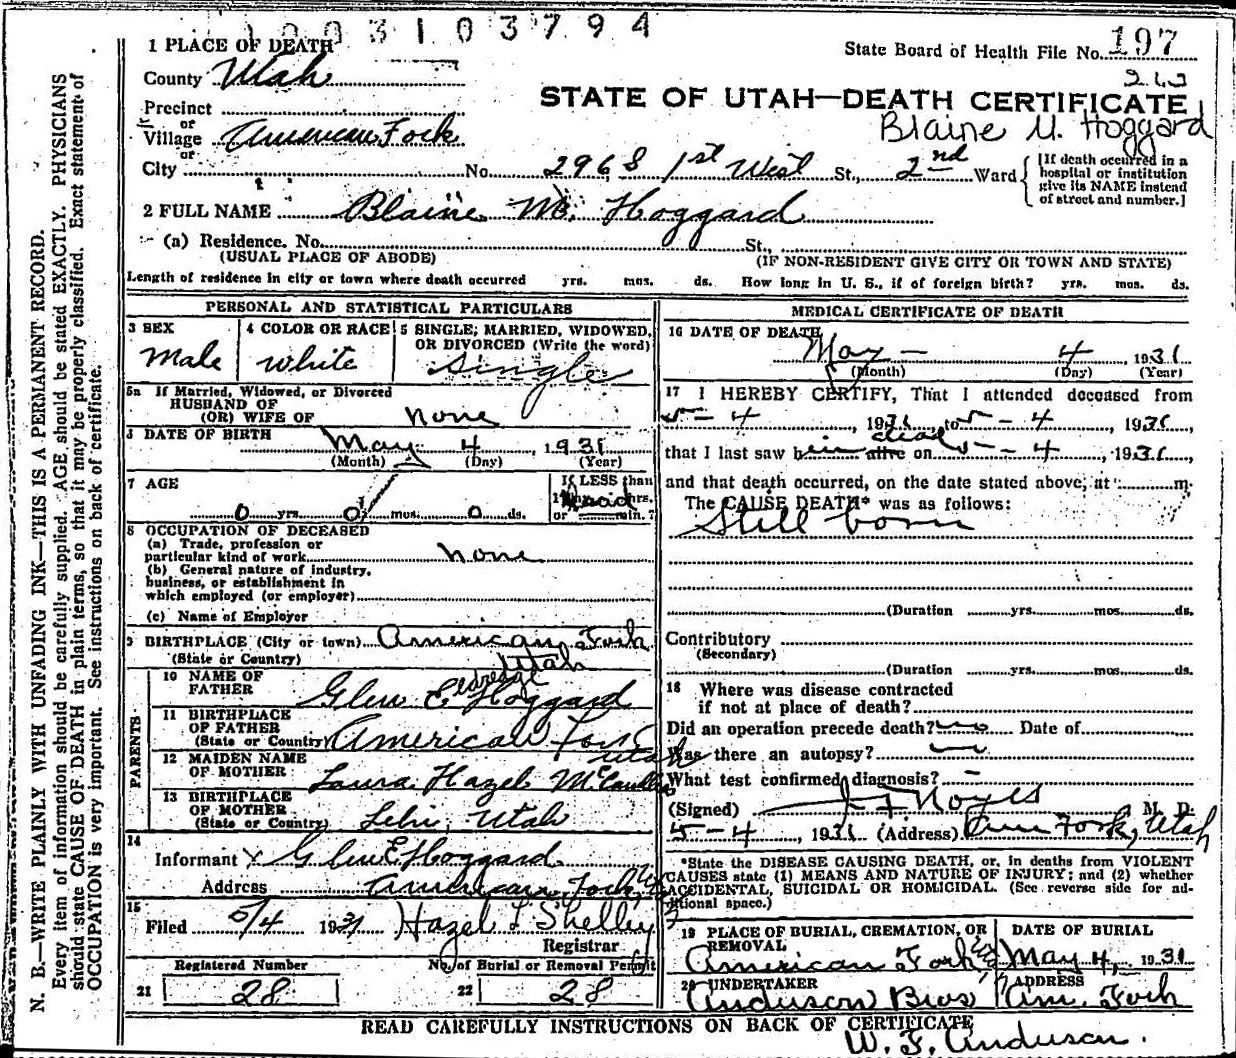 1003103794
1 PLACE OF DEATH
State Board of Health File No. 197
County Utah
STATE OF UTAH—DEATH CERTIFICATE
Precinct
or
Blaine M. Hoggard
Village American Fork
or
City No. 296 S 1st West St., 2nd Ward
[If death occurred in a
hospital or institution
give its NAME instead
of street and number.]
2 FULL NAME Blaine M. Hoggard
(a) Residence. No. St.,
(USUAL PLACE OF ABODE) (IF NON-RESIDENT GIVE CITY OR TOWN AND STATE)
Length of residence in city or town where death occurred yrs. mos. ds. How long in U. S., if of foreign birth? yrs. mos. ds.
PERSONAL AND STATISTICAL PARTICULARS
3 SEX
Male
4 COLOR OR RACE
White
5 SINGLE, MARRIED, WIDOWED,
OR DIVORCED (Write the word)
Single
5a If Married, Widowed, or Divorced
HUSBAND OF
(OR) WIFE OF none
DATE OF BIRTH
May 4, 1931
(Month) (Day) (Year)
7 AGE
0 yrs. 0 mos. 0 ds.
If LESS than
hrs.
or min.?
8 OCCUPATION OF DECEASED
(a) Trade, profession or
particular kind of work none
(b) General nature of industry,
business, or establishment in
which employed (or employer)
(c) Name of Employer
9 BIRTHPLACE (City or town) American Fork
(State or Country) Utah
PARENTS
10 NAME OF
FATHER Glen Eldredge Hoggard
11 BIRTHPLACE
OF FATHER
(State or Country) American Fork Utah
12 MAIDEN NAME
OF MOTHER Laura Hazel
13 BIRTHPLACE
OF MOTHER
(State or Country) Lehi Utah
14
Informant X Glen E Hoggard
Address American Fork,
15
Filed 5/4 1931 Hazel L Shelley
Registrar
Registered Number No. of Burial or Removal Permit
21 28 22 28
MEDICAL CERTIFICATE OF DEATH
16 DATE OF DEATH
May - 4, 1931
(Month) (Day) (Year)
17 I HEREBY CERTIFY, That I attended deceased from
5-4, 1931, to 5-4, 1931,
that I last saw him alive dead on 5-4, 1931,
and that death occurred, on the date stated above, at m.
The CAUSE DEATH* was as follows:
Still born
(Duration yrs. mos. ds.
Contributory
(Secondary)
(Duration yrs. mos. ds.
18 Where was disease contracted
if not at place of death?
Did an operation precede death? no Date of
Was there an autopsy?
What test confirmed diagnosis? -
(Signed) J F Noyes M. D.
5-4, 1931 (Address) Am Fork, Utah
*State the DISEASE CAUSING DEATH, or, in deaths from VIOLENT
CAUSES state (1) MEANS AND NATURE OF INJURY; and (2) whether
ACCIDENTAL, SUICIDAL OR HOMICIDAL. (See reverse side for ad-
ditional space.)
19 PLACE OF BURIAL, CREMATION, OR
REMOVAL
American Fork
DATE OF BURIAL
May 4, 1931
20 UNDERTAKER
Anderson Bros
ADDRESS
Am. Fork
READ CAREFULLY INSTRUCTIONS ON BACK OF CERTIFICATE
W. F. Anderson.
N. B.—WRITE PLAINLY WITH UNFADING INK—THIS IS A PERMANENT RECORD.
Every item of information should be carefully supplied. AGE should be stated EXACTLY. PHYSICIANS
should state CAUSE OF DEATH in plain terms, so that it may be properly classified. Exact statement of
OCCUPATION is very important. See instructions on back of certificate.